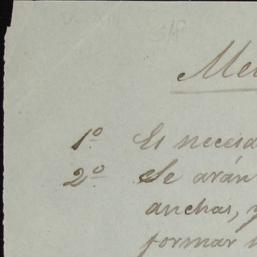 Me
1º Es necesa
2º Se arán
anchas, y
formar